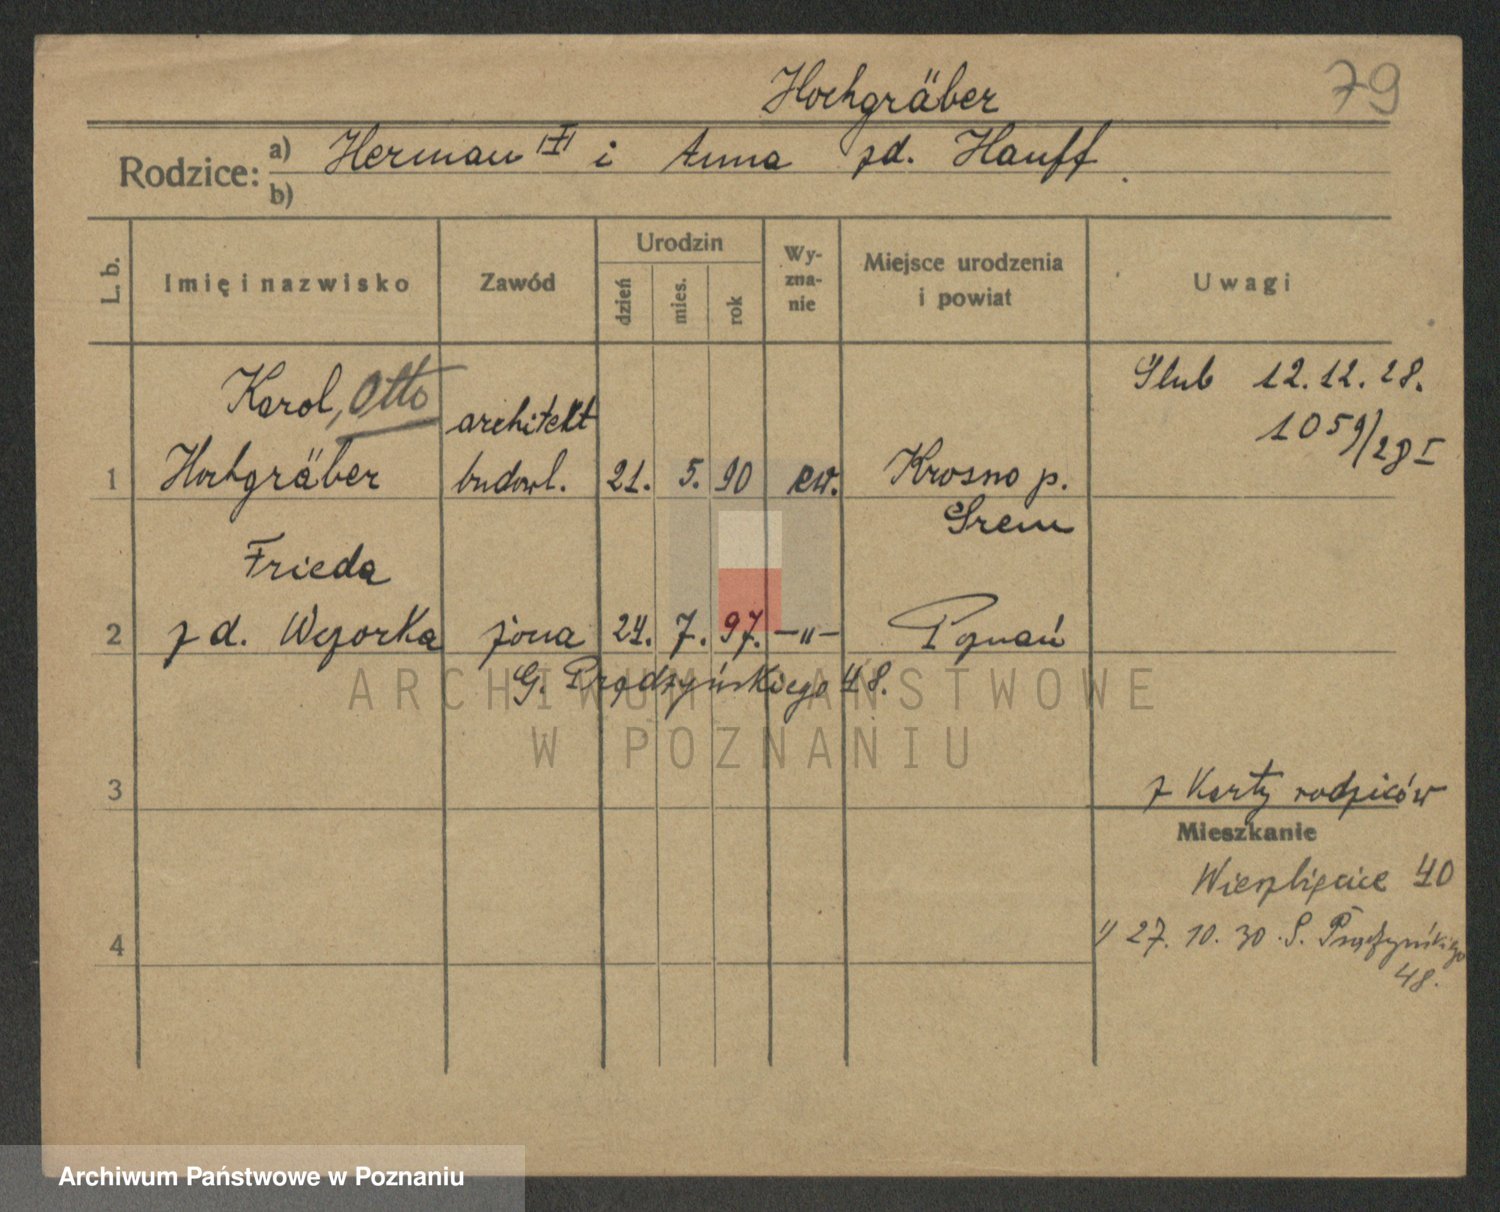 79
Hochgräber
Rodzice: a) Herman /I/ i Anna zd. Hauff.
b)
L. b. Imię i nazwisko Zawód Urodzin dzień mies. rok Wy-zna-nie Miejsce urodzenia i powiat Uwagi
Karol, Otto architekt Ślub 12.12.28.
1059/28 I
1 Hochgräber budowl. 21. 5. 90 ew. Krosno p.
Śrem
Frieda
2 zd. Wezorka żona 24. 7. 97. -"- Poznań
G. Prądzyńskiego 48.
3 z Karty rodziców
Mieszkanie
Wierzbięcice 40
4 27. 10. 30. G. Prądzyńskiego
48.
ARCHIWUM PAŃSTWOWE
W POZNANIU
Archiwum Państwowe w Poznaniu